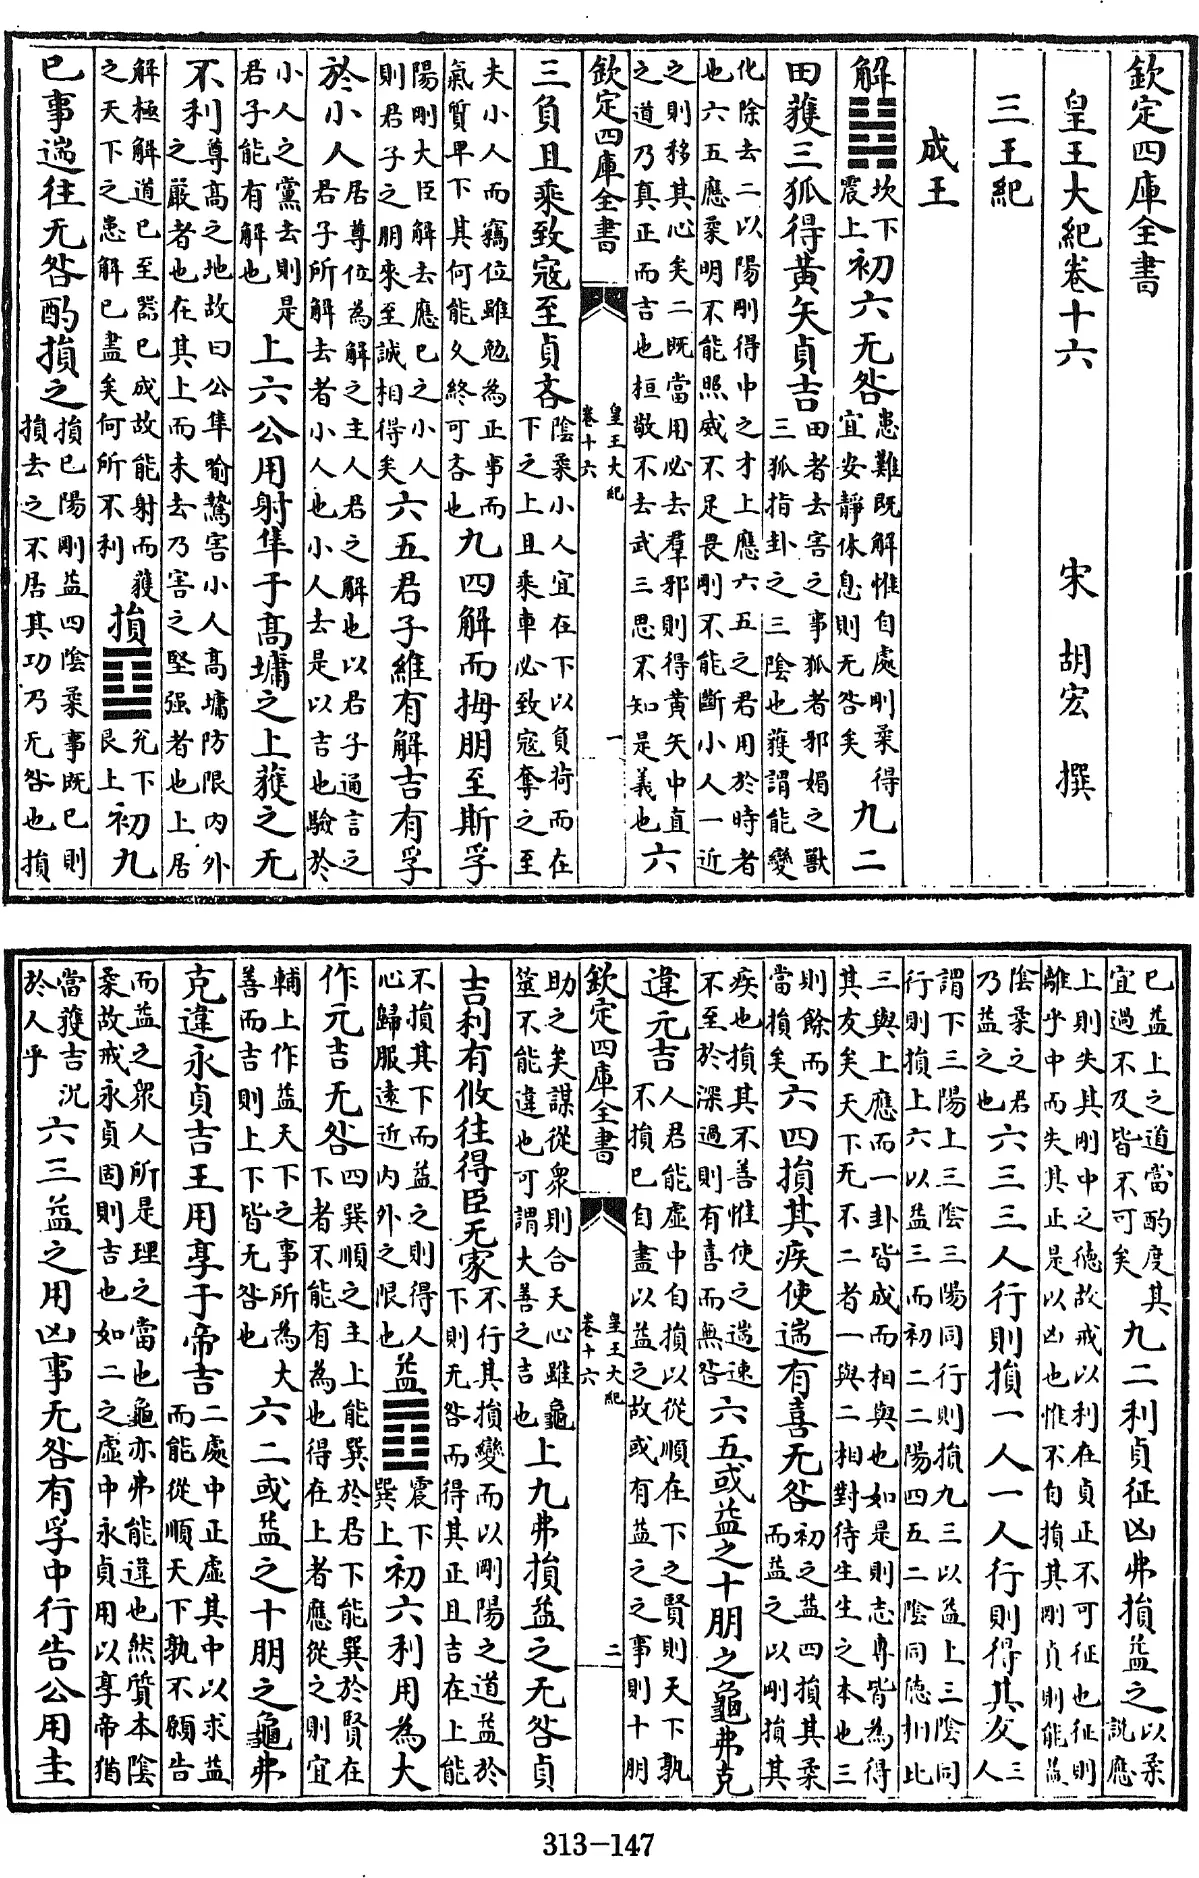 欽定四庫全書
皇王大紀卷十六 宋 胡宏 撰
三王紀
成王
解䷧坎下震上初六无咎患難既解惟自處剛柔得宜安靜休息則无咎矣九二
田獲三狐得黃矢貞吉田者去害之事狐者邪媚之獸三狐指卦之三陰也獲謂能變
化除去二以陽剛得中之才上應六五之君用於時者也六五應柔明不能照威不足畏剛不能斷小人一近
之則移其心矣二既當用必去羣邪則得黃矢中直之道乃真正而吉也桓敬不去武三思不知是義也六
欽定四庫全書 皇王大紀 卷十六 一
三負且乘致寇至貞吝陰柔小人宜在下以負荷而在下之上且乘車必致寇奪之至
夫小人而竊位雖勉為正事而氣質卑下其何能久終可吝也九四解而拇朋至斯孚
陽剛大臣解去應已之小人則君子之朋來至誠相得矣六五君子維有解吉有孚
於小人居尊位為解之主人君之解也以君子通言之君子所解去者小人也小人去是以吉也驗於
小人之黨去則是君子能有解也上六公用射隼于高墉之上獲之无
不利尊高之地故曰公隼喻鷙害小人高墉防限內外之嚴者也在其上而未去乃害之堅强者也上居
解極解道已至器已成故能射而獲之天下之患解已盡矣何所不利損䷨兌下艮上初九
已事遄往无咎酌損之損已陽剛益四陰柔事既已則損去之不居其功乃无咎也損
已益上之道當酌度其宜過不及皆不可矣九二利貞征凶弗損益之以柔說應
上則失其剛中之德故戒以利在貞正不可征也征則離乎中而失其正是以凶也惟不自損其剛貞則能益
陰柔之君乃益之也六三三人行則損一人一人行則得其友三人
謂下三陽上三陰三陽同行則損九三以益上三陰同行則損上六以益三而初二二陽四五二陰同德相比
三與上應而一卦皆成而相與也如是則志專皆為得其友矣天下无不二者一與二相對待生生之本也三
則餘而當損矣六四損其疾使遄有喜无咎初之益四損其柔而益之以剛損其
疾也損其不善惟使之遄速不至於深過則有喜而無咎六五或益之十朋之龜弗克
違元吉人君能虛中自損以從順在下之賢則天下孰不損已自盡以益之故或有益之之事則十朋
欽定四庫全書 皇王大紀 卷十六 二
助之矣謀從衆則合天心雖龜筮不能違也可謂大善之吉也上九弗損益之无咎貞
吉利有攸往得臣无家不行其損變而以剛陽之道益於下則无咎而得其正且吉在上能
不損其下而益之則得人心歸服遠近內外之限也益䷩震下巽上初六利用為大
作元吉无咎四巽順之主上能巽於君下能巽於賢在下者不能有為也得在上者應從之則宜
輔上作益天下之事所為大善而吉則上下皆无咎也六二或益之十朋之龜弗
克違永貞吉王用享于帝吉二處中正虛其中以求益而能從順天下孰不願告
而益之衆人所是理之當也龜亦弗能違也然質本陰柔故戒永貞固則吉也如二之虛中永貞用以享帝猶
當獲吉況於人乎六三益之用凶事无咎有孚中行告公用圭
313-147